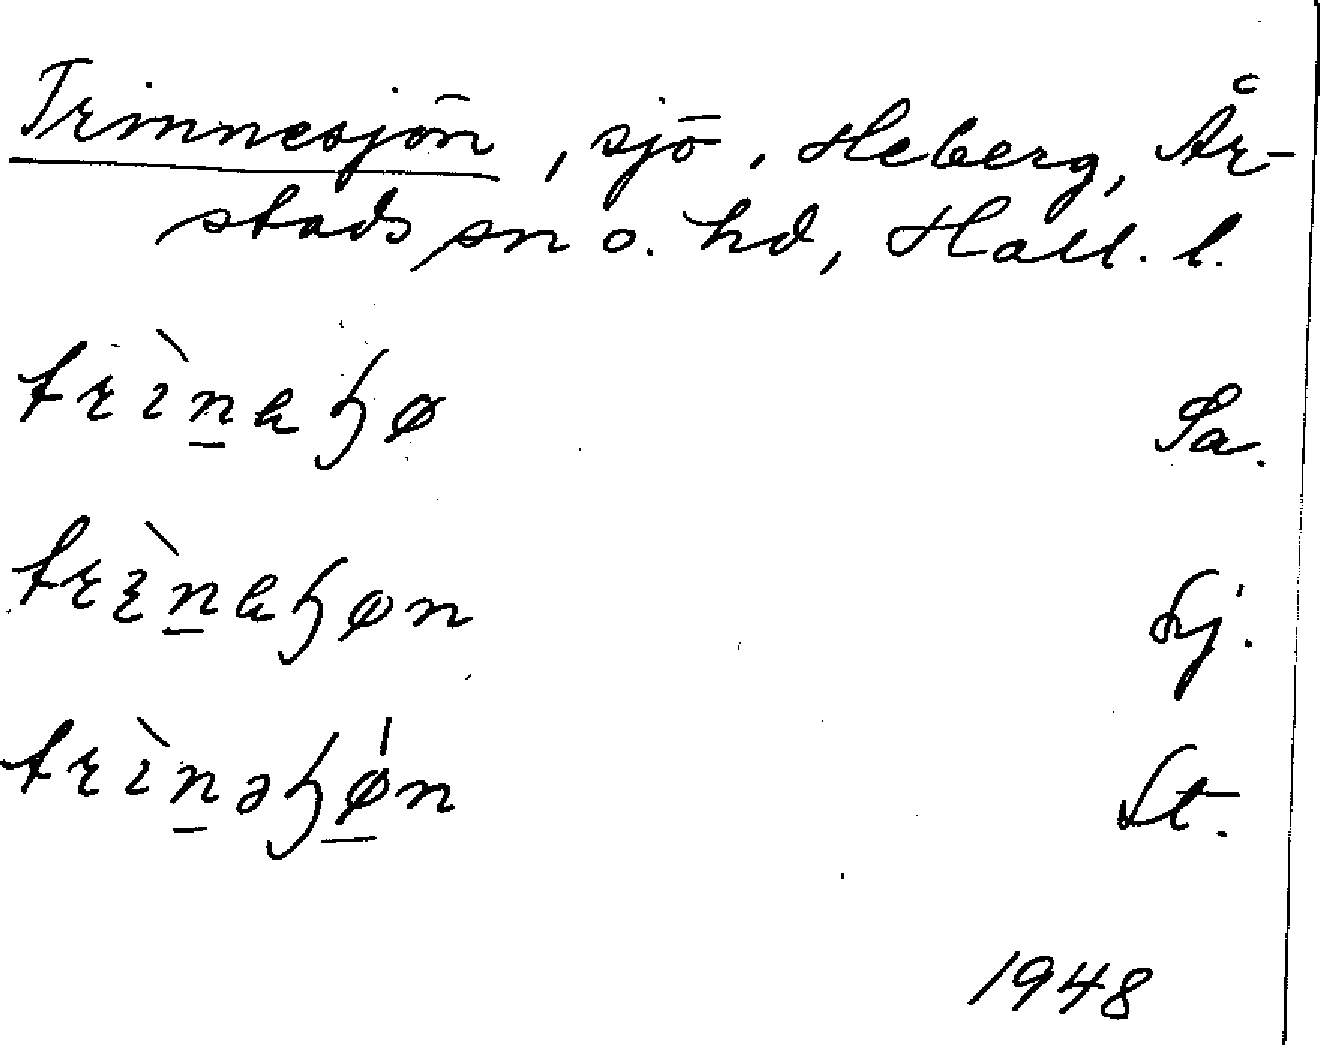 Trinnesjön, sjö, Heberg, År-
stads sn o. hd, Hall. l.
trìn̲eɧø Sa.
trìn̲eɧøn Sj.
trìn̲əɧǿ̲n St.
1948